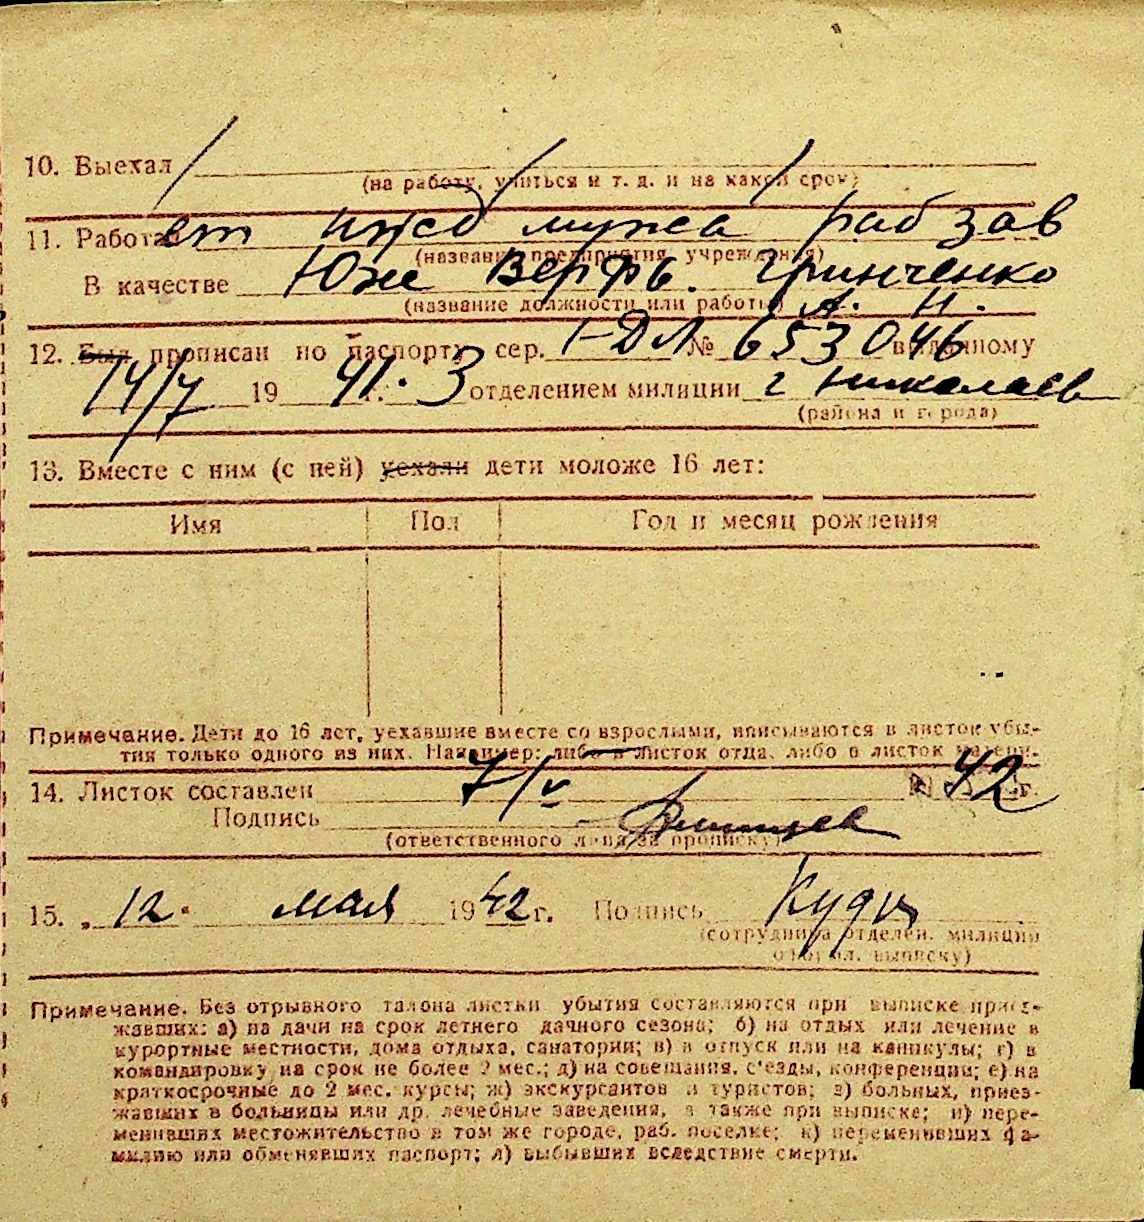 10. Выехал
(на работу, учиться и т. д. и на какой срок)
11. Работает ижд мужа раб зав
(название предприятия, учреждения)
В качестве Юж Верфь. Гринченко
(название должности или работы) А. Н.
12. Был прописан по паспорту сер. I-ДЛ № 653046 выданному
14/7 1941 г. 3 отделением милиции г Николаев
(района и города)
13. Вместе с ним (с ней) уехали дети моложе 16 лет:
Имя Пол Год и месяц рождения
Примечание. Дети до 16 лет, уехавшие вместе со взрослыми, вписываются в листок убы-
тия только одного из них. Например: либо в листок отца, либо в листок матери.
14. Листок составлен 7/V 42 г.
Подпись
(ответственного лица за прописку)
15. „12" мая 1942 г. Подпись
(сотрудника отделен. милиции
оформл. выписку)
Примечание. Без отрывного талона листки убытия составляются при выписке приез-
жавших: а) на дачи на срок летнего дачного сезона; б) на отдых или лечение в
курортные местности, дома отдыха, санатории; в) в отпуск или на каникулы; г) в
командировку на срок не более 2 мес.; д) на совещания, с'езды, конференции; е) на
краткосрочные до 2 мес. курсы; ж) экскурсантов и туристов; з) больных, приез-
жавших в больницы или др. лечебные заведения, а также при выписке; и) пере-
менивших местожительство в том же городе, раб. поселке; к) переменивших фа-
милию или обменявших паспорт; л) выбывших вследствие смерти.